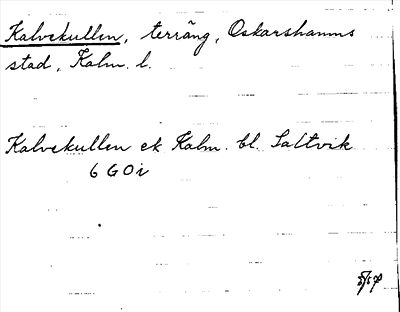 Kalvekullen, terräng, Oskarshamns
stad, Kalm. l.
Kalvekullen ek Kalm. bl. Saltvik
6 G 0 i